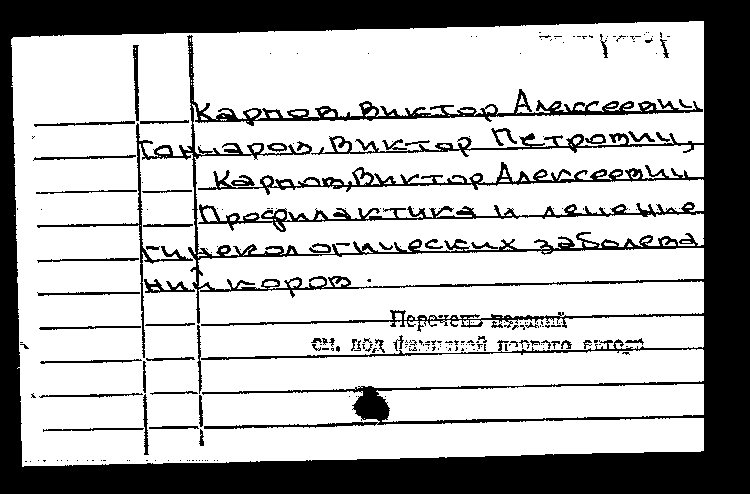 Карпов, Виктор Алексеевич
Гончаров, Виктор Петрович,
Карпов, Виктор Алексеевич
Профилактика и лечение
гинекологических заболева
ний коров.
Перечень изданий
см. под фамилией первого автора